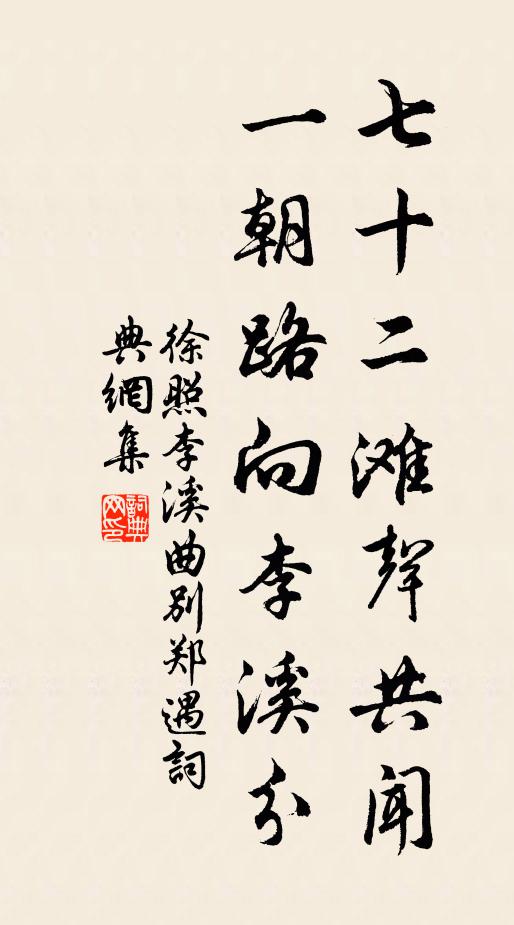 七十二滩聲共闻
一朝路向李溪分
徐照李溪曲别郑遇詞
典網集
詞典网印